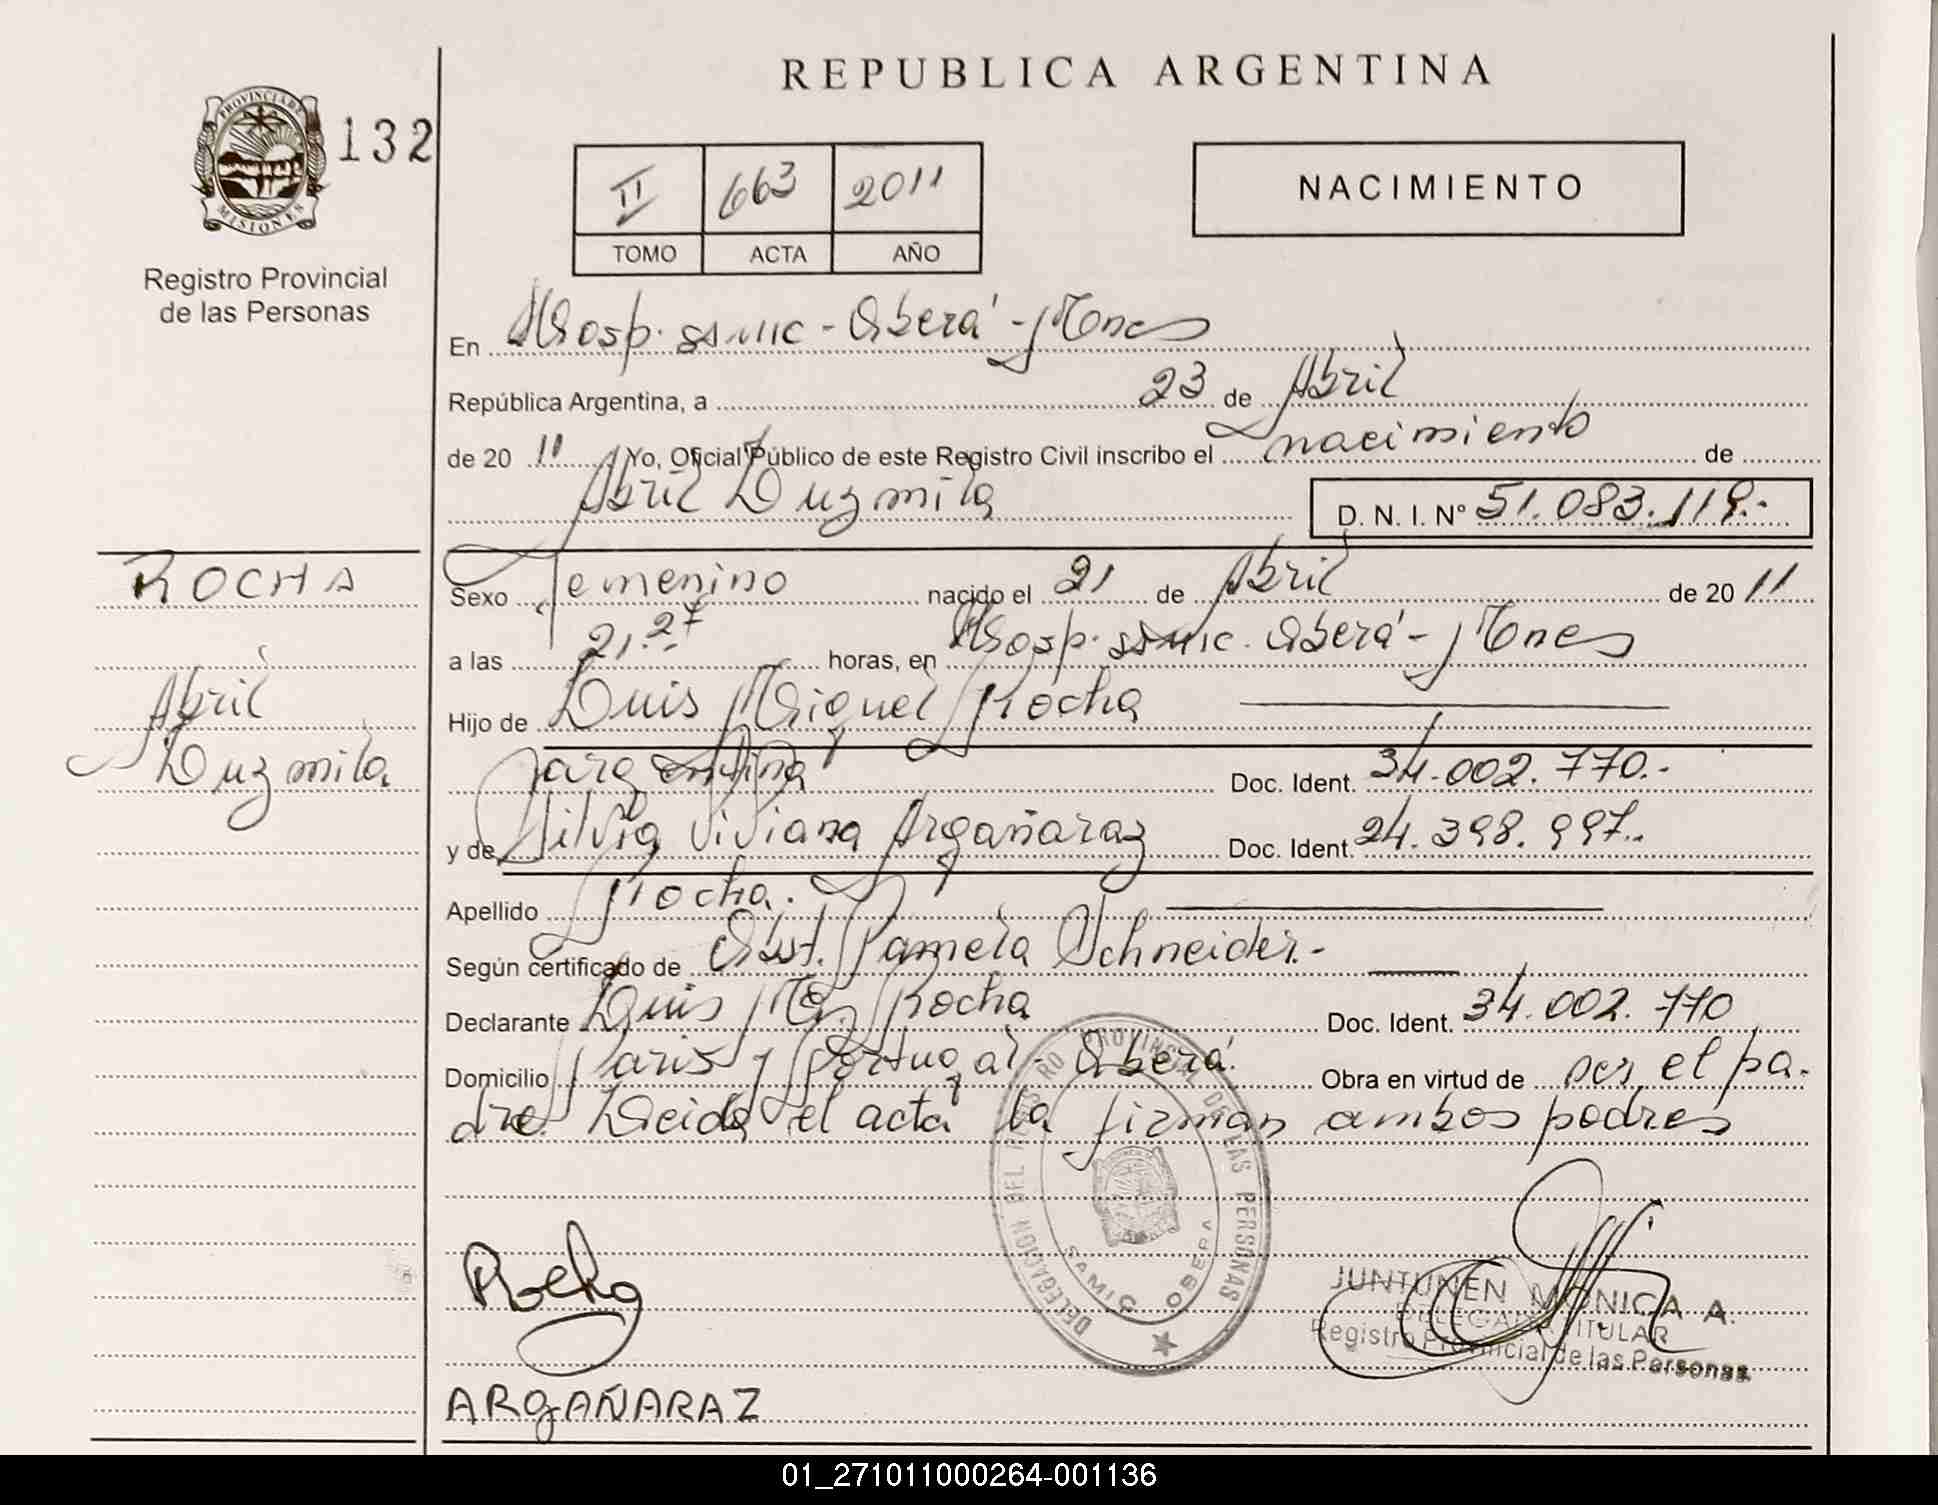 REPUBLICA ARGENTINA
PROVINCIA DE MISIONES
132
Registro Provincial
de las Personas
II 663 2011
TOMO ACTA AÑO
NACIMIENTO
En Hosp. SAMIC - Oberá - Mnes
República Argentina, a 23 de Abril
de 20 11 Yo, Oficial Público de este Registro Civil inscribo el nacimiento de
Abril Luzmila D. N. I. Nº 51.083.119.-
ROCHA
Abril
Luzmila
Sexo Femenino nacido el 21 de Abril de 20 11
a las 21.27 horas, en Hosp. SAMIC. Oberá - Mnes
Hijo de Luis Miguel Rocha
argentina Doc. Ident. 34.002.770.-
y de Silvia Viviana Argañaraz Doc. Ident. 24.398.997.-
Apellido Rocha.
Según certificado de Obst. Pamela Schneider.-
Declarante Luis Mg. Rocha Doc. Ident. 34.002.770
Domicilio Paris y Portugal - Oberá. Obra en virtud de ser el pa-
dre. Leida el acta la firman ambos padres
DELEGACION DEL REGISTRO PROVINCIAL DE LAS PERSONAS
SAMIC OBERA
Rocha
JUNTUNEN MONICA A.
DELEGADA TITULAR
Registro Provincial de las Personas
ARGAÑARAZ
01_271011000264-001136